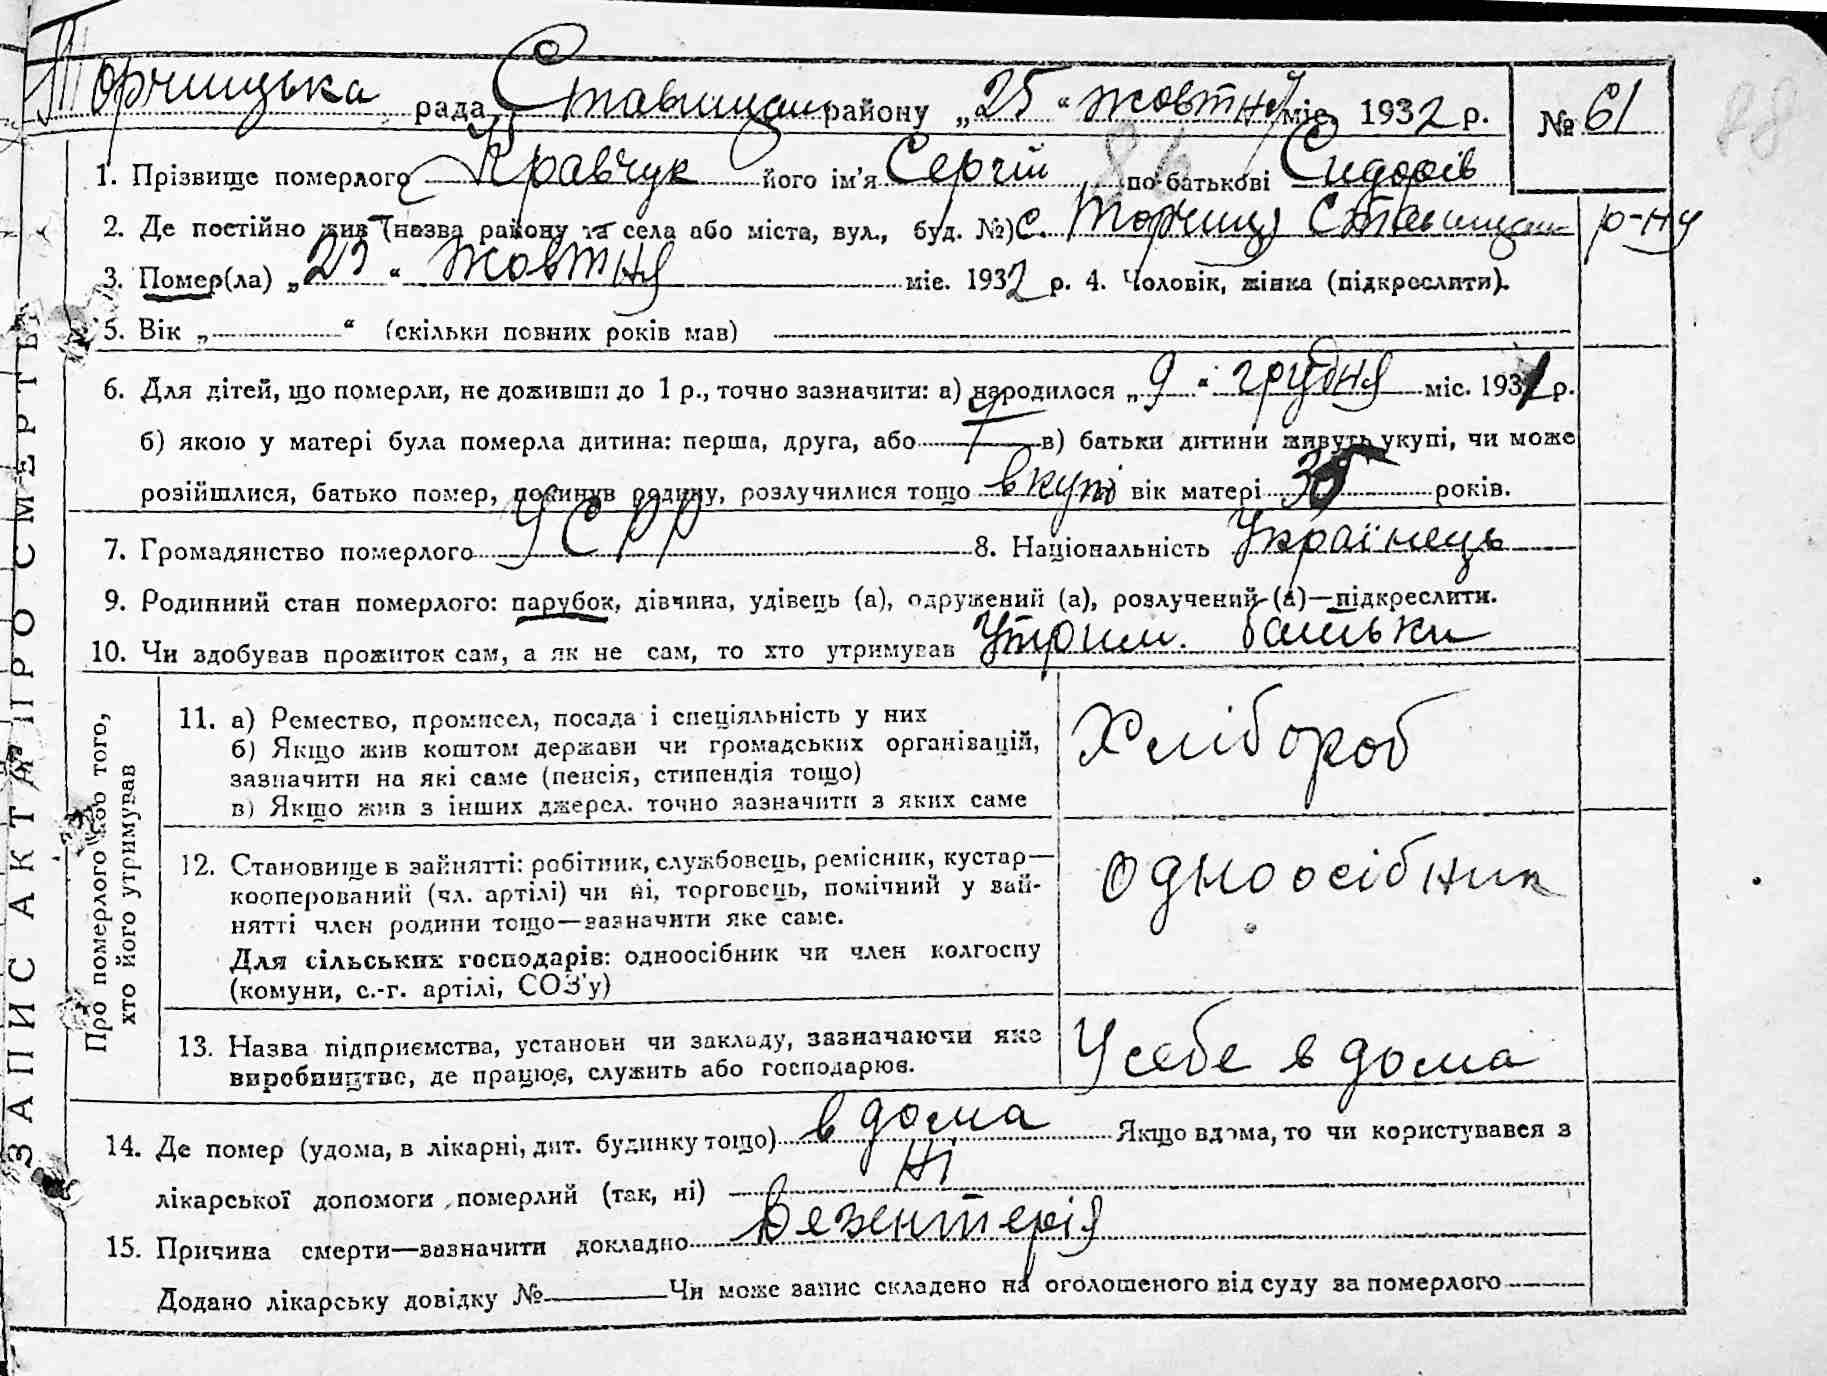 Торчицька рада Ставищан району „25“ жовтня міс. 1932 р. № 61
88
1. Прізвище померлого Кравчук його ім'я Сергій по-батькові Сидорів
2. Де постійно жив (назва району та села або міста, вул., буд. №) с. Торчиця Ставищан р-ну
3. Помер(ла) „25“ жовтня міс. 1932 р. 4. Чоловік, жінка (підкреслити).
5. Вік „ “ (скільки повних років мав)
6. Для дітей, що померли, не доживши до 1 р., точно зазначити: а) народилося „9“ грудня міс. 1931 р.
б) якою у матері була померла дитина: перша, друга, або в) батьки дитини живуть укупі, чи може
розійшлися, батько помер, покинув родину, розлучилися тощо вкупі вік матері років.
7. Громадянство померлого УСРР 8. Національність Українець
9. Родинний стан померлого: парубок, дівчина, удівець (а), одружений (а), розлучений (а)—підкреслити.
10. Чи здобував прожиток сам, а як не сам, то хто утримував Утрим. батьки
ЗАПИС АКТА ПРО СМЕРТЬ
Про померлого або того,
хто його утримував
11. а) Ремество, промисел, посада і спеціяльність у них
б) Якщо жив коштом держави чи громадських організацій,
зазначити на які саме (пенсія, стипендія тощо)
в) Якщо жив з інших джерел. точно зазначити з яких саме
Хлібороб
12. Становище в зайнятті: робітник, службовець, ремісник, кустар—
кооперований (чл. артілі) чи ні, торговець, помічний у зай-
нятті член родини тощо—зазначити яке саме.
Для сільських господарів: одноосібник чи член колгоспу
(комуни, с.-г. артілі, СОЗ'у)
одноосібник
13. Назва підприємства, установи чи закладу, зазначаючи яке
виробництво, де працює, служить або господарює.
У себе в дома
14. Де помер (удома, в лікарні, дит. будинку тощо) в дома Якщо вдома, то чи користувався з
лікарської допомоги померлий (так, ні) Ні
15. Причина смерти—зазначити докладно Дезентерія
Додано лікарську довідку № Чи може запис складено на оголошеного від суду за померлого